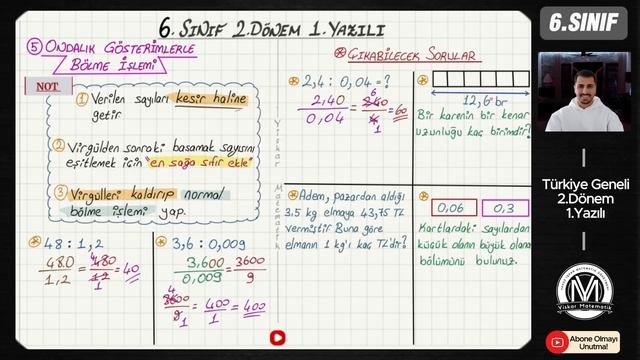 6. SINIF 2.DÖNEM 1.YAZILI
⑤ ONDALIK GÖSTERİMLERLE
BÖLME İŞLEMİ
NOT
① Verilen sayıları kesir haline
getir
② Virgülden sonraki basamak sayısını
eşitlemek için "en sağa sıfır ekle"
③ Virgülleri kaldırıp normal
bölme işlemi yap.
48 : 1,2
48.0/1,2 = 480/12 = 40
1
3,6 : 0,009
3,600/0,009 = 3600/9
4
3600/9 = 400/1 = 400
1
ÇIKABİLECEK SORULAR
2,4 : 0,04 = ?
6
2,40/0,04 = 240/4 = 60
1
12,6 br
Bir karenin bir kenar
uzunluğu kaç birimdir?
Adem, pazardan aldığı
3.5 kg elmaya 43,75 TL
vermiştir Buna göre
elmanın 1 kg'ı kaç TL'dir?
0,06 0,3
Kartlardaki sayılardan
küçük olanın büyük olana
bölümünü bulunuz.
Viskar Matematik
6.SINIF
Türkiye Geneli
2.Dönem
1.Yazılı
Viskar Matematik
Abone Olmayı
Unutma!